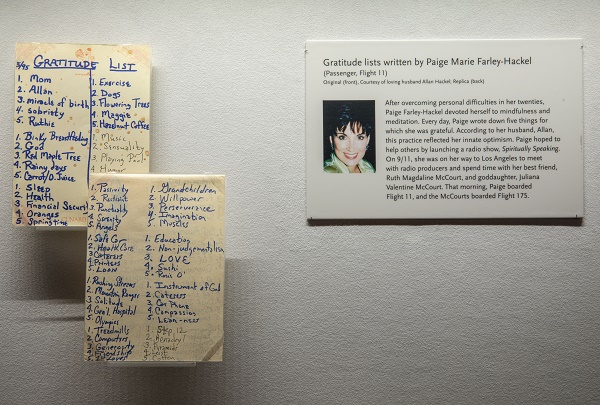 3/95 GRATITUDE LIST
1. Mom
2. Allan
3. miracles of birth
4. sobriety
5. Ruthie
1. Exercise
2. Dogs
3. Flowering Trees
4. Maggie
5. Hazelnut Coffee
1. Binky Breastfeeding
2. God
3. Red Maple Tree
4. Rainy days
5. Carrot/O. Juice
1. Music
2. Sensuality
3. Playing Pool
4. Humor
1. Sleep
2. Health
3. Financial Security
4. Oranges
5. Springtime
2. Restraint
3. Punctuality
4. Serenity
5. Angels
1. Grandchildren
2. Willpower
3. Perserverance
4. Imagination
5. Muscles
1. Safe Car
2. Health Care
3. Caterers
4. Printers
5. Loan
1. Education
2. Non-judgementalism
3. LOVE
4. Sushi
1. Rushing Streams
2. Mountain Ranges
3. Solitude
4. Hospital
5. Olympics
1. Instrument of God
2. Caterers
3. Car Phone
4. Compassion
5. Lean-ness
1. Treadmills
2. Computers
3. Generosity
4. Friendship
1. Step 12
2. Benadryl
3. Pyramids
Gratitude lists written by Paige Marie Farley-Hackel
(Passenger, Flight 11)
Original (front), Courtesy of loving husband Allan Hackel; Replica (back)
After overcoming personal difficulties in her twenties,
Paige Farley-Hackel devoted herself to mindfulness and
meditation. Every day, Paige wrote down five things for
which she was grateful. According to her husband, Allan,
this practice reflected her innate optimism. Paige hoped to
help others by launching a radio show, Spiritually Speaking.
On 9/11, she was on her way to Los Angeles to meet
with radio producers and spend time with her best friend,
Ruth Magdaline McCourt, and goddaughter, Juliana
Valentine McCourt. That morning, Paige boarded
Flight 11, and the McCourts boarded Flight 175.